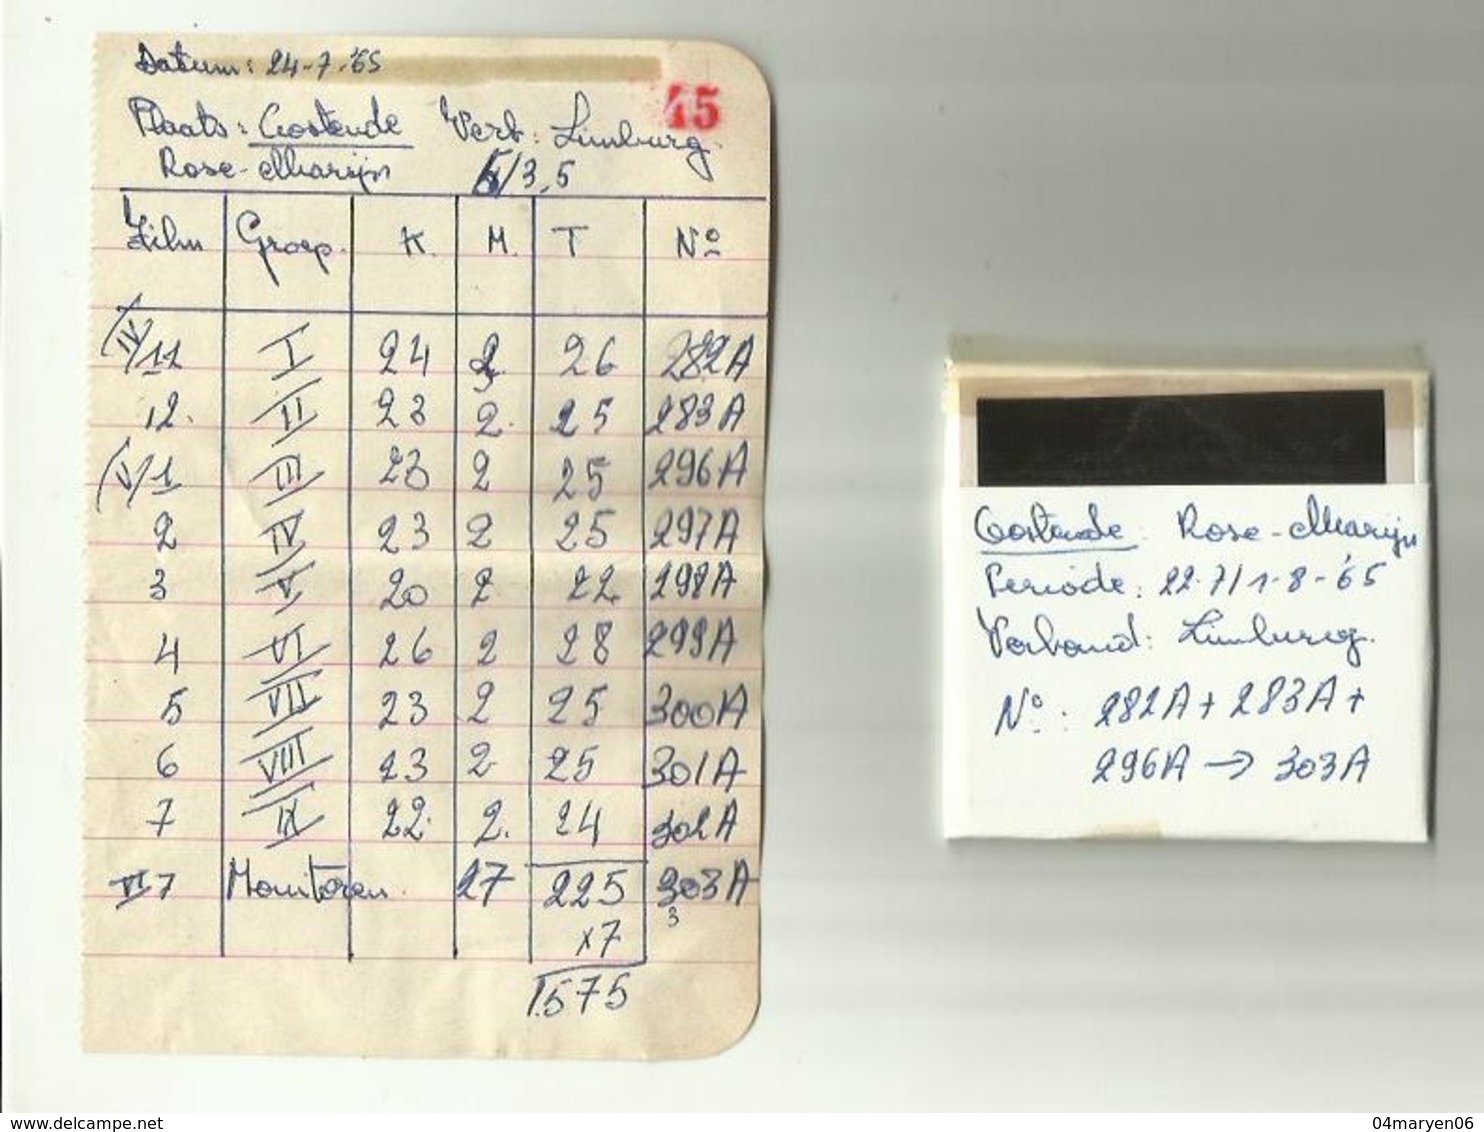 Datum: 24-7-'65
45
Plaats: Oostende Verb: Limburg.
Rose-Marijn 5/3,5
Film Groep. K. M. T No
(IV/11 I 24 2 26 282A
3
12. II 23 2. 25 283A
(V/1 III 23 2 25 296A
2 IV 23 2 25 297A
3 V 20 2 22 298A
4 VI 26 2 28 299A
5 VII 23 2 25 300A
6 VIII 23 2 25 301A
7 IX 22 2. 24 302A
VI 7 Monitoren. 27 225 303A
3
x7
1.575
Oostende: Rose-Marijn
Periode: 22-7/1-8-'65
Verbond: Limburg.
No: 282A + 283A +
296A → 303A
www.delcampe.net
04maryen06